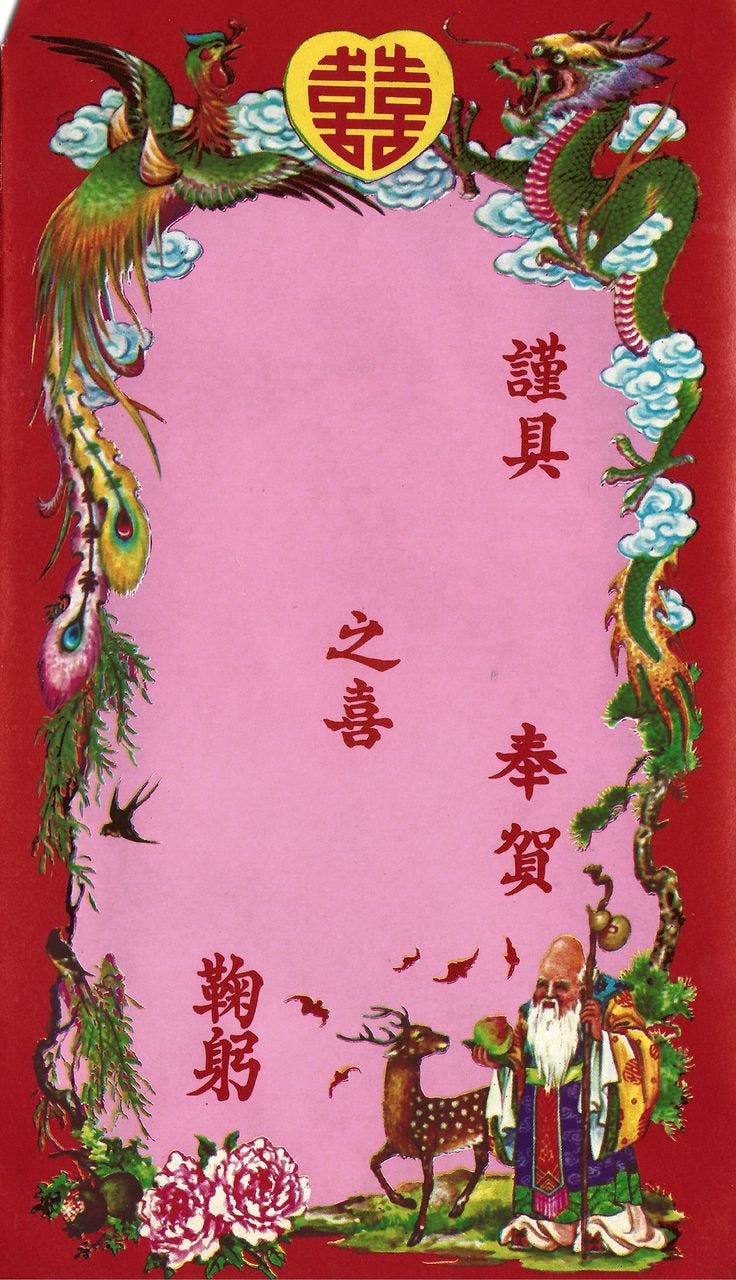 囍
謹具
奉賀
之喜
鞠躬